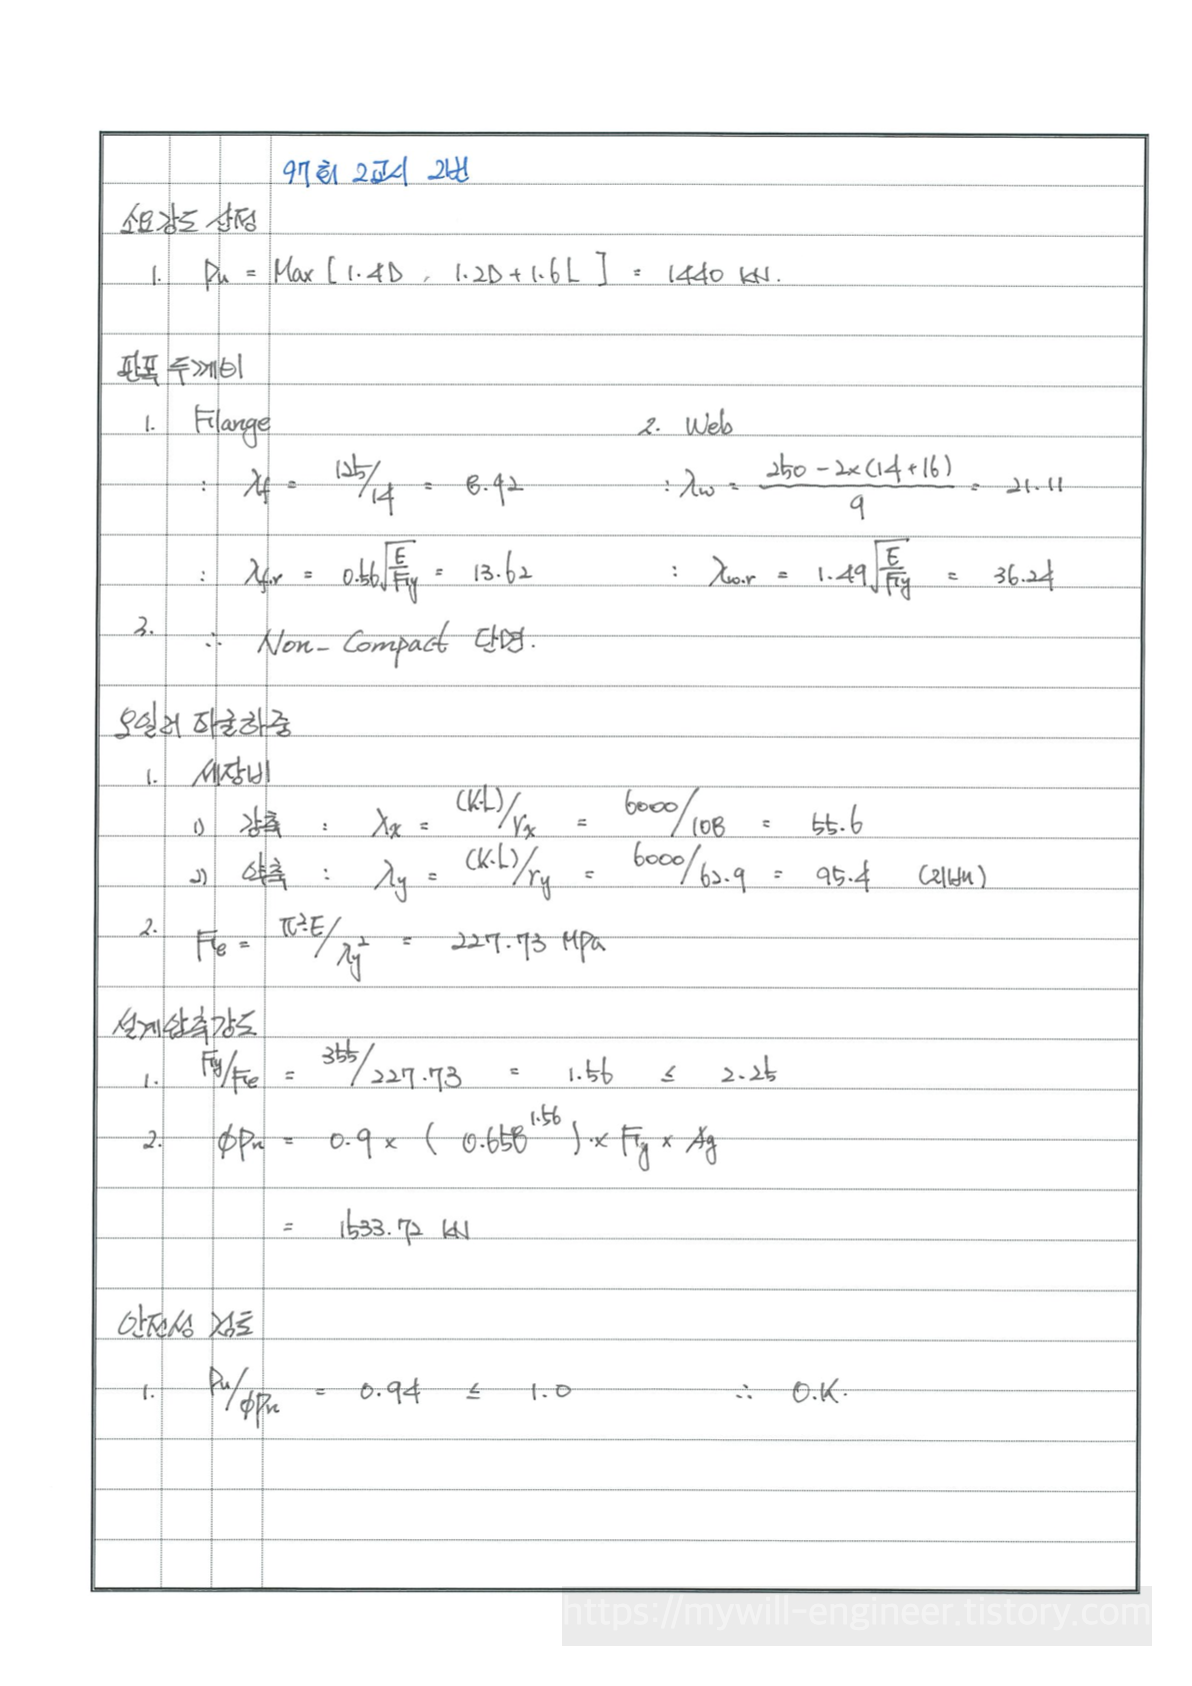 97회 2교시 2번
소요강도 산정
1. Pu = Max [ 1.4D , 1.2D + 1.6L ] = 1440 kN.
판폭 두께비
1. Flange
: λf = 125/14 = 8.92
: λf.r = 0.56√(E/Fy) = 13.62
2. Web
: λw = (250 - 2×(14+16))/9 = 21.11
: λw.r = 1.49√(E/Fy) = 36.24
3. ∴ Non-Compact 단면.
오일러 좌굴하중
1. 세장비
1) 강축 : λx = (K·L)/rx = 6000/108 = 55.6
2) 약축 : λy = (K·L)/ry = 6000/62.9 = 95.4 (지배)
2. Fe = π²E/λy² = 227.73 MPa
설계압축강도
1. Fy/Fe = 355/227.73 = 1.56 ≤ 2.25
2. φPn = 0.9 × ( 0.658^1.56 ) × Fy × Ag
= 1533.72 kN
안전성 검토
1. Pu/φPn = 0.94 ≤ 1.0 ∴ O.K.
https://mywill-engineer.tistory.com